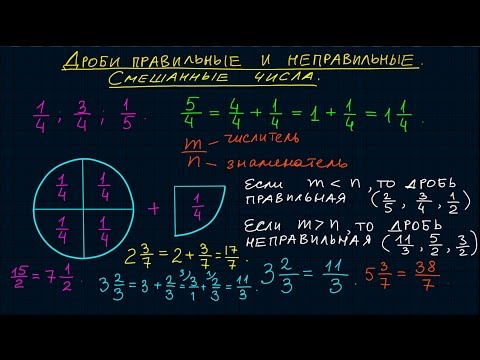 Дроби правильные и неправильные.
Смешанные числа.
1/4 ; 3/4 ; 1/5
5/4 = 4/4 + 1/4 = 1 + 1/4 = 1 1/4 .
m/n
числитель
знаменатель
1/4 1/4
1/4 1/4
+
1/4
Если m < n, то дробь
правильная (2/5, 3/4, 1/2)
Если m > n, то дробь
неправильная (11/3, 5/2, 3/2)
2 3/7 = 2 + 3/7 = 17/7 .
15/2 = 7 1/2 .
3 2/3 = 3 + 2/3 = 3/1 3/ + 2/3 1/ = 11/3 .
3 2/3 = 11/3 .
5 3/7 = 38/7 .